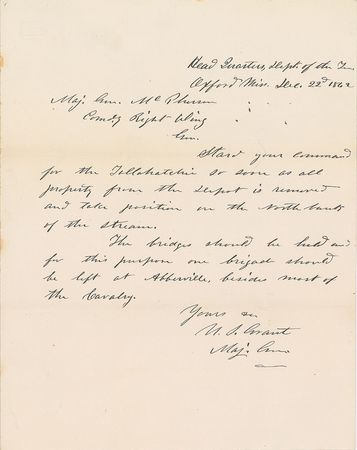 Head Quarters, Dept. of the T
Oxford Miss. Dec. 22d 1862
Maj. Gen. McPherson " "
Comdg Right Wing "
Gen.
Start your command
for the Tallahatchie so soon as all
property from the depot is removed
and take position on the North bank
of the stream.
The bridges should be held and
for this purpose one brigade should
be left at Abberville, besides most of
the Cavalry.
Yours &c
U. S. Grant
Maj. Gen.